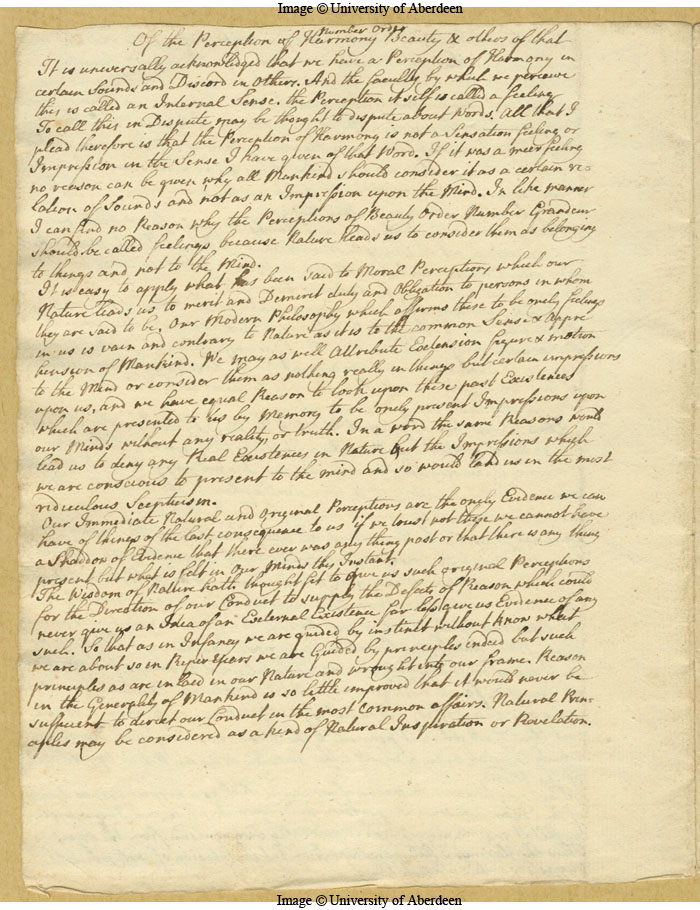 Image © University of Aberdeen
Number Order
Of the Perception of Harmony Beauty & others of that
It is universally acknowledged that we have a Perception of Harmony in
certain Sounds and Discord in others. And the faculty by which we perceive
this is called an Internal Sense. the Perception it self is called a feeling
To call this in Dispute may be thought to dispute about Words. All that I
plead therefore is that the Perception of Harmony is not a Sensation feeling or
Impression in the Sense I have given of that Word. If it was a meer feeling
no reason can be given why all Mankind should consider it as a certain re-
lation of Sounds and not as an Impression upon the Mind. In like manner
I can find no Reason why the Perceptions of Beauty Order Number Grandeur
should be called feelings because Nature leads us to consider them as belonging
to things and not to the Mind.
It is easy to apply what has been said to Moral Perceptions which our
Nature leads us to merit and Demerit duty and Obligation to persons in whom
they are said to be. Our Modern Philosophy which affirms these to be onely feelings
in us is vain and contrary to Nature as it is to the common Sense & Appre
hension of Mankind. We may as well Attribute Extension figure & motion
to the Mind or consider them as nothing really in things but certain impressions
upon us, and we have equal Reason to look upon these past Existences
which are presented to us by Memory to be onely present Impressions upon
our Minds without any reality, or truth. In a word the same Reasons would
lead us to deny any Real Existences in Nature but the Impressions which
we are conscious to present to the mind and so would land us in the most
ridiculous Scepticism.
Our Immediate Natural and original Perceptions are the onely Evidence we can
have of things of the last consequence to us if we trust not these we cannot have
a Shaddow of Evidence that there ever was any thing past or that there is any thing
present but what is felt in our Minds this Instant.
The Wisdom of Nature hath thought fit to give us such original Perceptions
for the Direction of our Conduct to supply the Defects of Reason which could
never give us an Idea of an External Existence far less give us Evidence of any
such. So that as in Infancy we are guided by instinct without know what
we are about so in Riper Years we are Guided by principles indeed but such
principles as are in laid in our Nature and wrought into our frame. Reason
in the Generality of Mankind is so little improved that it would never be
sufficient to direct our Conduct in the most common affairs. Natural Prin-
ciples may be considered as a kind of Natural Inspiration or Revelation.
Image © University of Aberdeen